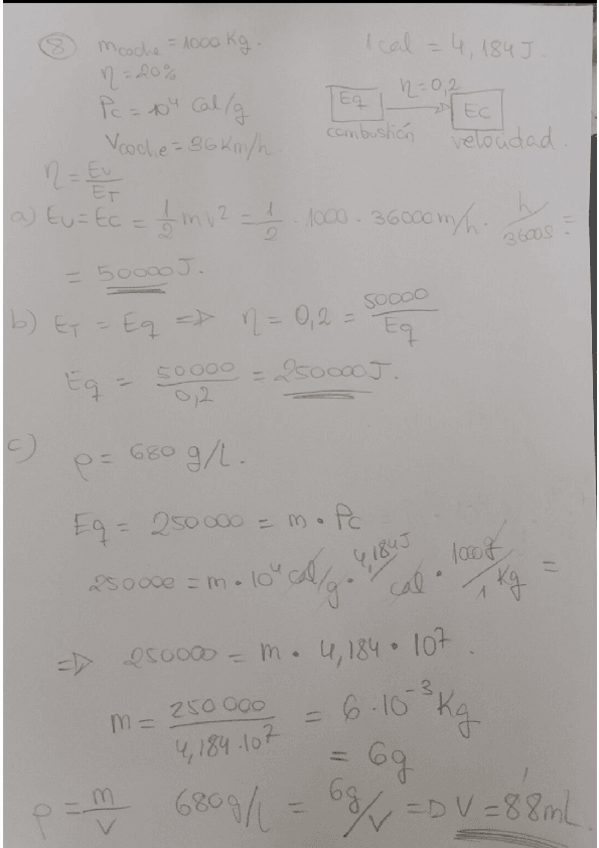 8 m coche = 1000 Kg. 1 cal = 4,184 J.
η = 20%
Pc = 10⁴ Cal/g Eq η = 0,2 EC
Vcoche = 36 Km/h. combustión velocidad.
η = Eu/ET
a) Eu = Ec = 1/2 mv² = 1/2 · 1000 · 36000 m/h · h/3600s =
= 50000 J.
b) ET = Eq => η = 0,2 = 50000/Eq
Eq = 50000/0,2 = 250000 J.
c) ρ = 680 g/L.
Eq = 250000 = m · Pc
250000 = m · 10⁴ cal/g · 4,184 J/cal · 1000 g/1 Kg =
=> 250000 = m · 4,184 · 10⁷.
m = 250 000/4,184·10⁷ = 6·10⁻³ Kg
= 6g
ρ = m/V 680 g/L = 6g/V => V = 8'8 mL